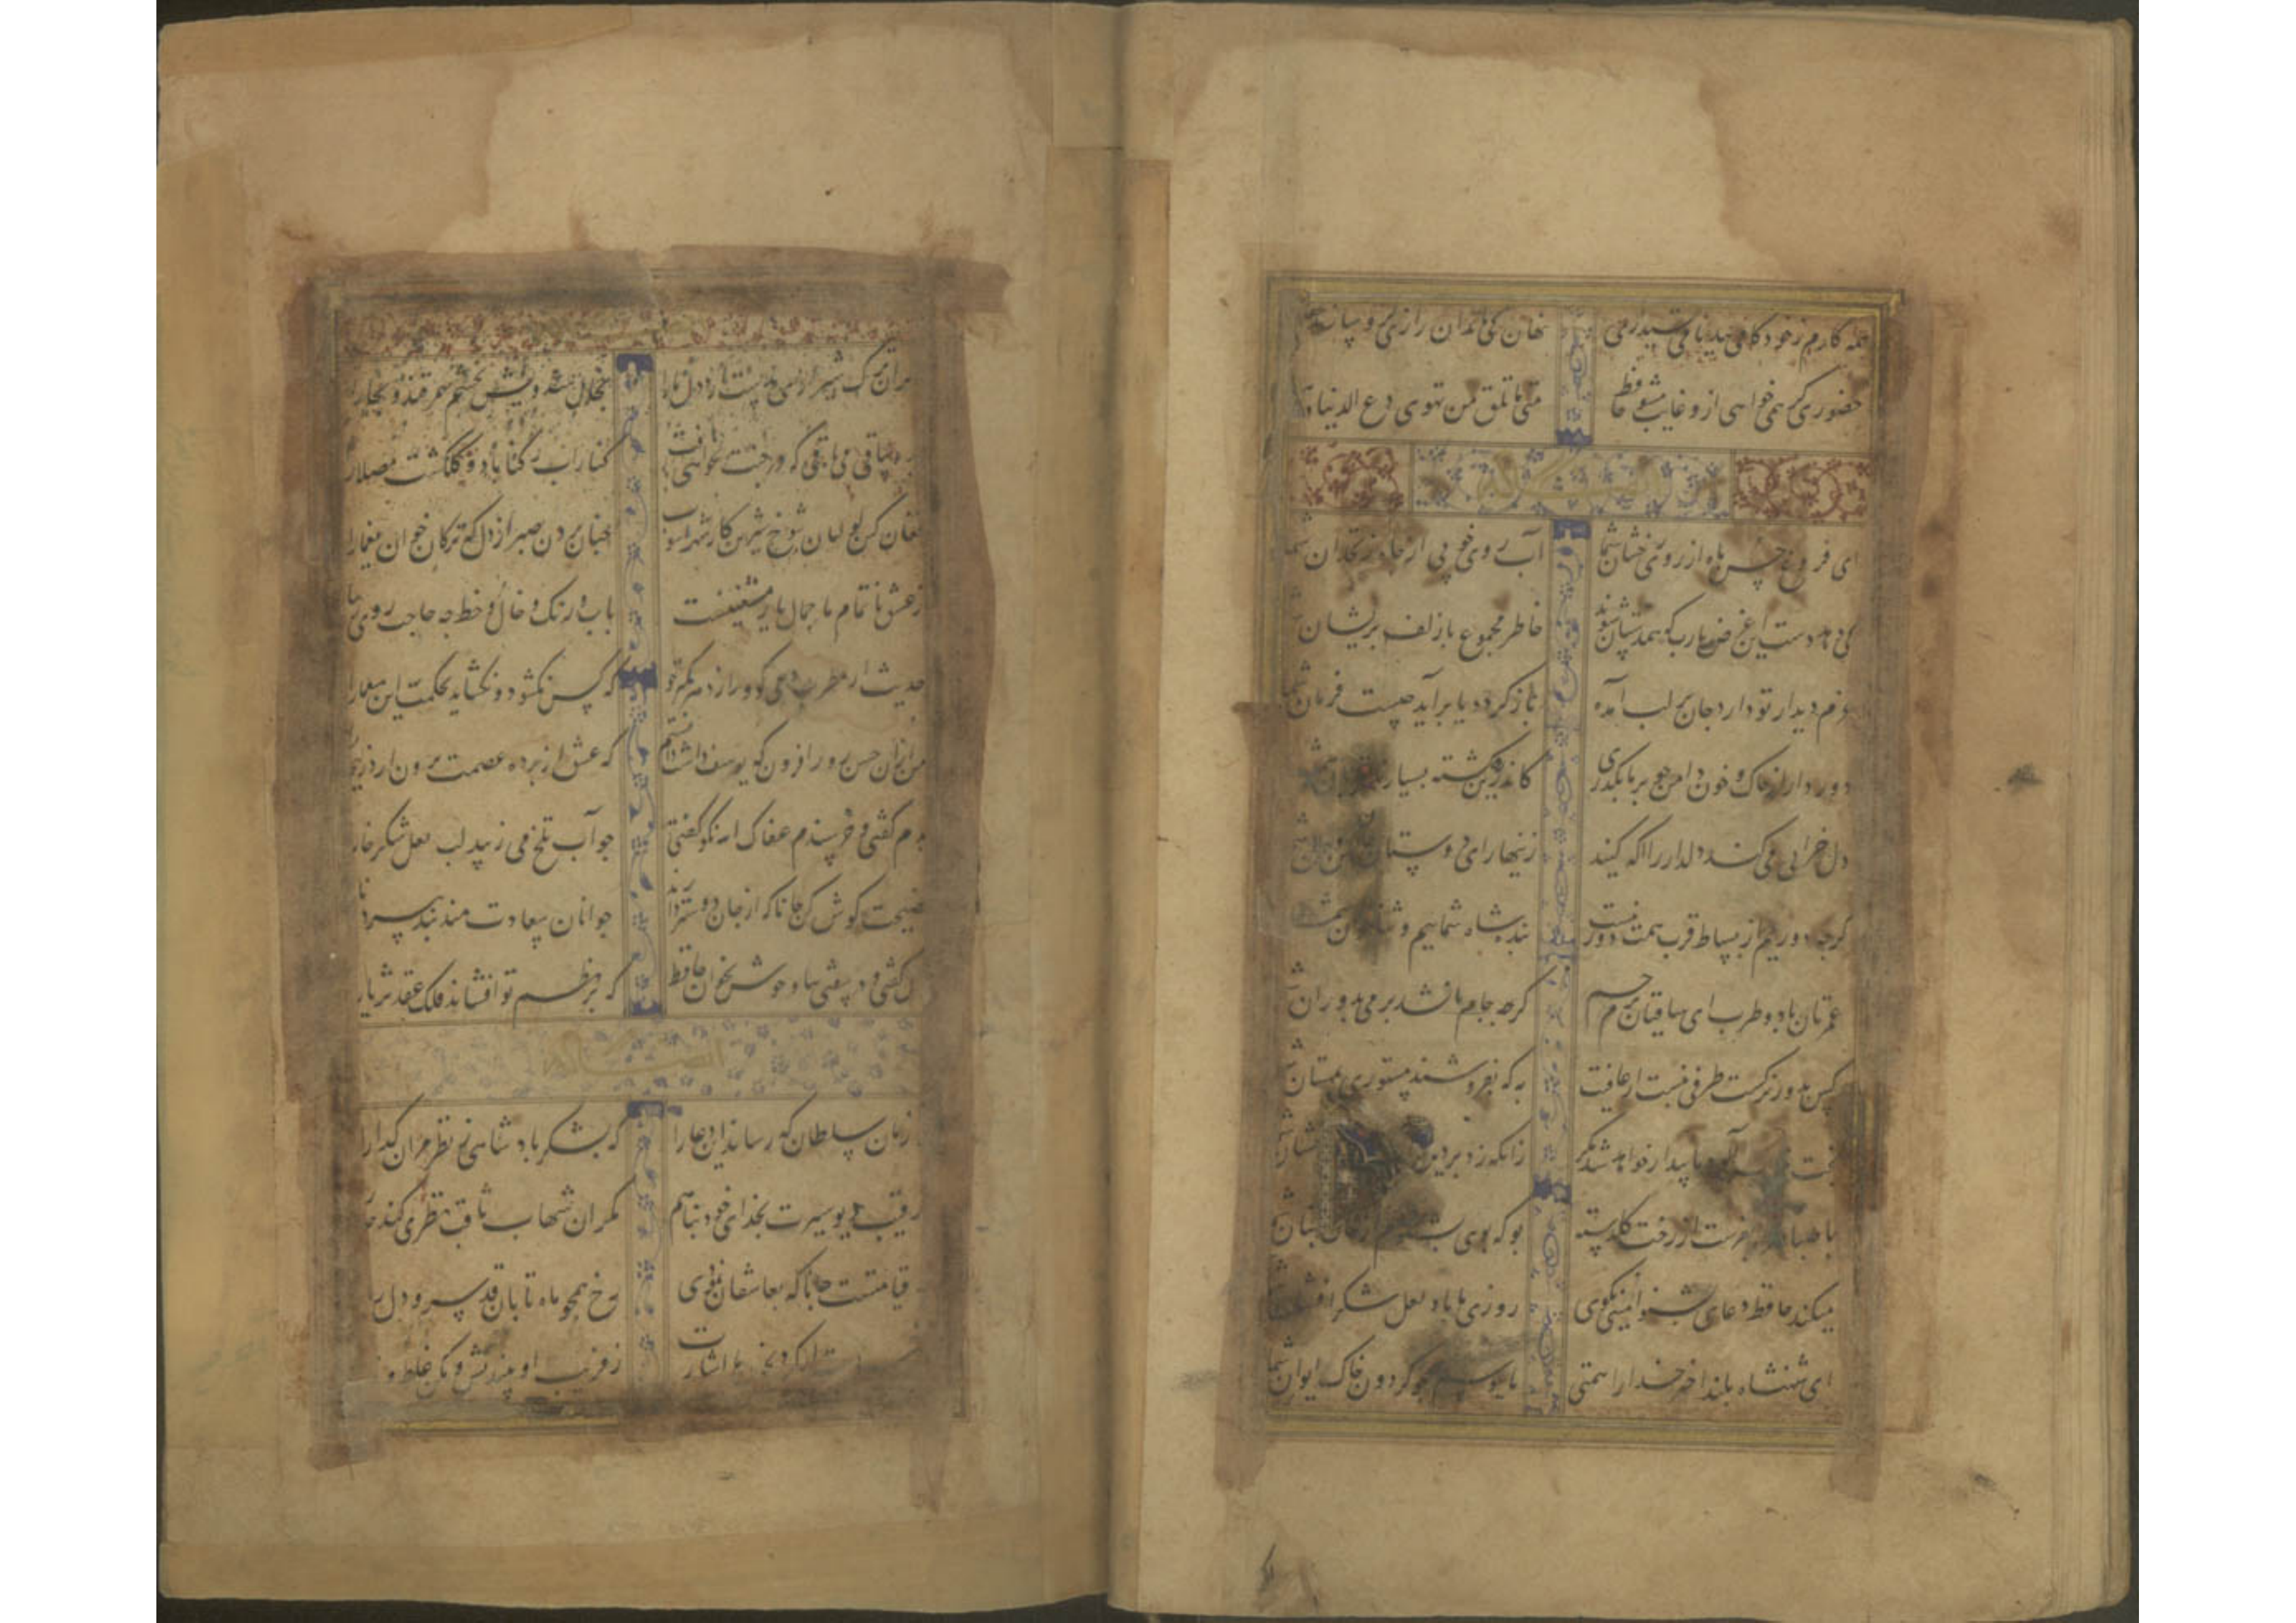 همه کارم ز خود کامی ببدنامی کشید آخر نهان کی ماند آن رازی کزو سازند
حضوری گر همی خواهی ازو غایب مشو حافظ متی ما تلق من تهوی دع الدنیا
ای فروغ حسن ماه از روی رخشان شما آب روی خوبی از چاه زنخدان شما
کی دهد دست این غرض یارب که همدستان شوند خاطر مجموع ما زلف پریشان شما
عزم دیدار تو دارد جان بر لب آمده باز گردد یا برآید چیست فرمان شما
دور دار از خاک و خون دامن چو بر ما بگذری کاندرین ره کشته بسیارند
دل خرابی می کند دلدار را آگه کنید زینهار ای دوستان
گرچه دوریم از بساط قرب همت دور نیست بنده شاه شماییم و ثناخوان شما
عمرتان باد و طرب ای ساقیان بزم جم گرچه جام ما نشد پر می بدوران شما
کس بدور نرگست طرفی نبست از عافیت به که نفروشند مستوری بمستان شما
بخت بیدار خواهد شد مگر زانکه زد بر دیده
با صبا همراه بفرست از رخت گلدسته بو که بوی بشنویم از خاک بستان شما
میکند حافظ دعای بشنو آمینی بگوی روزی ما باد لعل شکرافشان شما
ای شهنشاه بلند اختر خدا را همتی تا ببوسم همچو گردون خاک ایوان شما
گر آن ترک شیرازی بدست آرد دل ما را بخال هندویش بخشم سمرقند و بخارا
بده ساقی می باقی که در جنت نخواهی یافت کنار آب رکناباد و گلگشت مصلا را
فغان کین لولیان شوخ شیرین کار شهرآشوب چنان بردند صبر از دل که ترکان خوان یغما را
ز عشق ناتمام ما جمال یار مستغنیست باب و رنگ و خال و خط چه حاجت روی
حدیث از مطرب و می گو و راز دهر کمتر جو که کس نگشود و نگشاید بحکمت این معما را
من از آن حسن روزافزون که یوسف داشت دانستم که عشق از پرده عصمت برون آرد زلیخا
بدم گفتی و خرسندم عفاک الله نکو گفتی جواب تلخ می زیبد لب لعل شکرخا را
نصیحت گوش کن جانا که از جان دوستر دارند جوانان سعادت مند پند پیر دانا
غزل گفتی و در سفتی بیا و خوش بخوان حافظ که بر نظم تو افشاند فلک عقد ثریا را
ز ملازمان سلطان که رساند این دعا را که بشکر پادشاهی ز نظر مران گدا را
ز رقیب دیو سیرت بخدای خود پناهم مگر آن شهاب ثاقب نظری کند
چه قیامتست جانا که بعاشقان نمودی رخ همچو ماه تابان قد سرو دل
ز فریب او بیندیش و مکن غلط